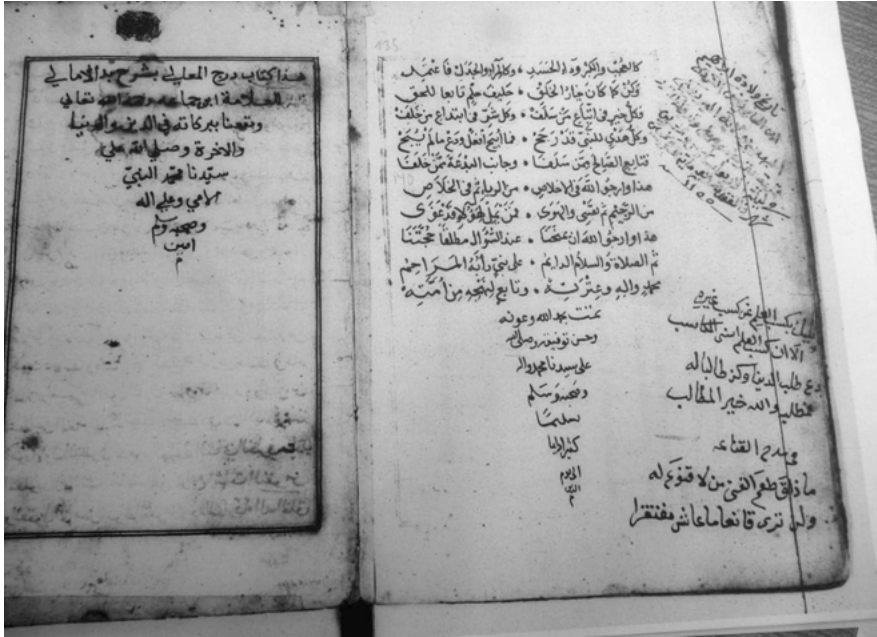 135
كالعجب والكبر وداء الحسد • وكالمراء والجدل فاعتمد
وكن كما كان خيار الخلق • حليف حلم تابعا للحق
فكل خير في اتباع من سلف • وكل شر في ابتداع من خلف
وكل هدي للنبي قد رجح • فما ابيح افعل ودع مالم يبح
فتابع الصالح ممن سلفا • وجانب البدعة ممن خلفا
هذا وارجو الله في الاخلاص • من الرياء ثم في الخلاص
من الرجيم ثم نفسي والهوى • فمن يمل لهؤلاء قد غوى
هذا وارجو الله ان يمنحنا • عند السؤال مطلقا حجتنا
ثم الصلاة والسلام الدايم • على نبي دأبه المراحم
محمد واله وعترته • وتابع لنهجه من امته
تمت بحمد الله وعونه
وحسن توفيقه وصلى الله
على سيدنا محمد واله
وصحبه وسلم
تسليما
كثيرا دايما
الى يوم
الدين
م
تاريخ ولادة
١١٥٥
بكسب العلم عن كسب غيره
الا ان كسب العلم اسنى المكاسب
دع طلب الدنيا وكن طالبا له
فمطلبه والله خير المطالب
في مدح القناعه
ماذاق طعم الغنى من لا قنوع له
ولن ترى قانعا ما عاش مفتقرا
هذا كتاب درج المعالي بشرح بدء الامالي
للعلامة ابن جماعه رحمه الله تعالى
ونفعنا ببركاته في الدين والدنيا
والاخرة وصلى الله على
سيدنا محمد النبي
الامي وعلى اله
وصحبه وسلم
امين
م